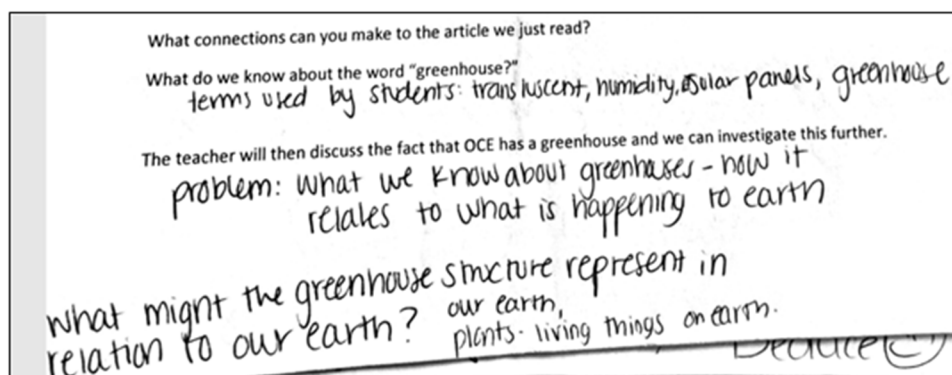 What connections can you make to the article we just read?
What do we know about the word "greenhouse?"
terms used by students: transluscent, humidity, solar panels, greenhouse
The teacher will then discuss the fact that OCE has a greenhouse and we can investigate this further.
problem: What we know about greenhouses - how it
relates to what is happening to earth
What might the greenhouse structure represent in
relation to our earth? our earth,
plants - living things on earth.